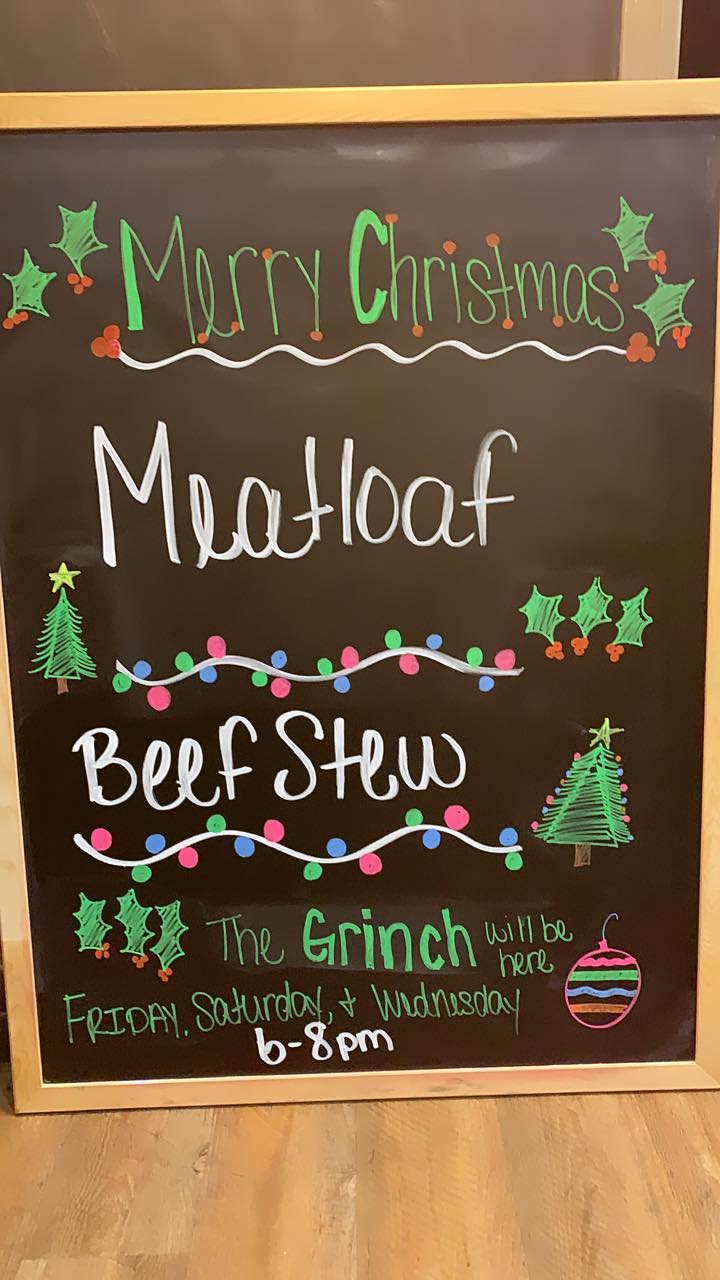 Merry Christmas
Meatloaf
Beef Stew
The Grinch will be
here
FRIDAY, Saturday, & Wednesday
6-8pm